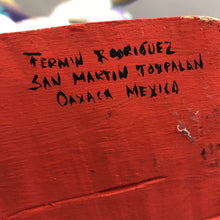 FERMIN RODRIGUEZ
SAN MARTIN TOXPALAN
OAXACA MEXICO